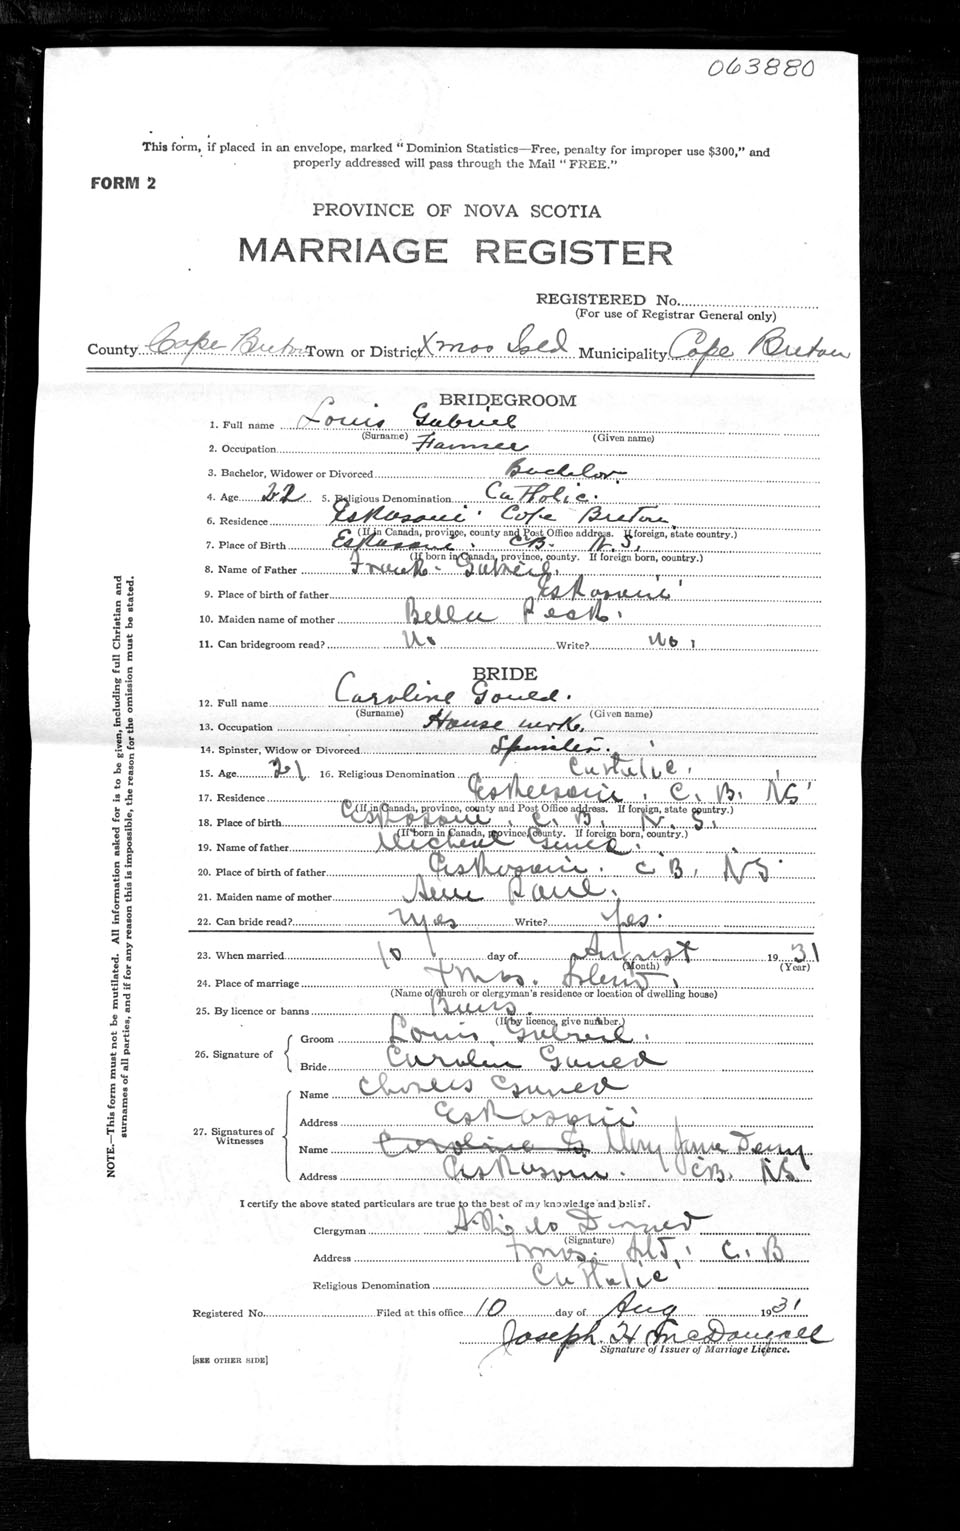 063880
This form, if placed in an envelope, marked "Dominion Statistics—Free, penalty for improper use $300," and
properly addressed will pass through the Mail "FREE."
FORM 2
PROVINCE OF NOVA SCOTIA
MARRIAGE REGISTER
REGISTERED No.
(For use of Registrar General only)
County Cape Breton Town or District Xmas Isld Municipality Cape Breton
BRIDEGROOM
1. Full name Louis Gabriel
(Surname) (Given name)
2. Occupation Farmer
3. Bachelor, Widower or Divorced Bachelor
4. Age 22 5. Religious Denomination Catholic.
6. Residence Eskasoni Cape Breton
(If in Canada, province, county and Post Office address. If foreign, state country.)
7. Place of Birth Eskasoni. CB. N.S.
(If born in Canada, province, county. If foreign born, country.)
8. Name of Father Frank Gabriel.
9. Place of birth of father Eskasoni
10. Maiden name of mother Bella
11. Can bridegroom read? No Write? No
BRIDE
12. Full name Caroline Goued.
(Surname) (Given name)
13. Occupation House work.
14. Spinster, Widow or Divorced Spinster.
15. Age 21 16. Religious Denomination Catholic.
17. Residence Eskasoni. C. B. NS
(If in Canada, province, county and Post Office address. If foreign, state country.)
18. Place of birth Eskasoni. C. B. N. S.
(If born in Canada, province, county. If foreign born, country.)
19. Name of father
20. Place of birth of father Eskasoni. C B. NS
21. Maiden name of mother Paul.
22. Can bride read? yes Write? yes.
23. When married 10 day of August 1931
(Month) (Year)
24. Place of marriage Xmas.
(Name of church or clergyman's residence or location of dwelling house)
25. By licence or banns
(If by licence, give number.)
26. Signature of
Groom Louis Gabreil.
Bride Goued
27. Signatures of Witnesses
Name Goued
Address Eskasoni
Name Caroline G Mary Jane Denny
Address Eskasoni. CB. NS
I certify the above stated particulars are true to the best of my knowledge and belief.
Clergyman
(Signature)
Address Xmas. C. B
Religious Denomination Catholic
Registered No. Filed at this office 10 day of Aug 1931
Joseph H McDougall
Signature of Issuer of Marriage Licence.
[SEE OTHER SIDE]
NOTE.—This form must not be mutilated. All information asked for is to be given, including full Christian and
surnames of all parties, and if for any reason this is impossible, the reason for the omission must be stated.